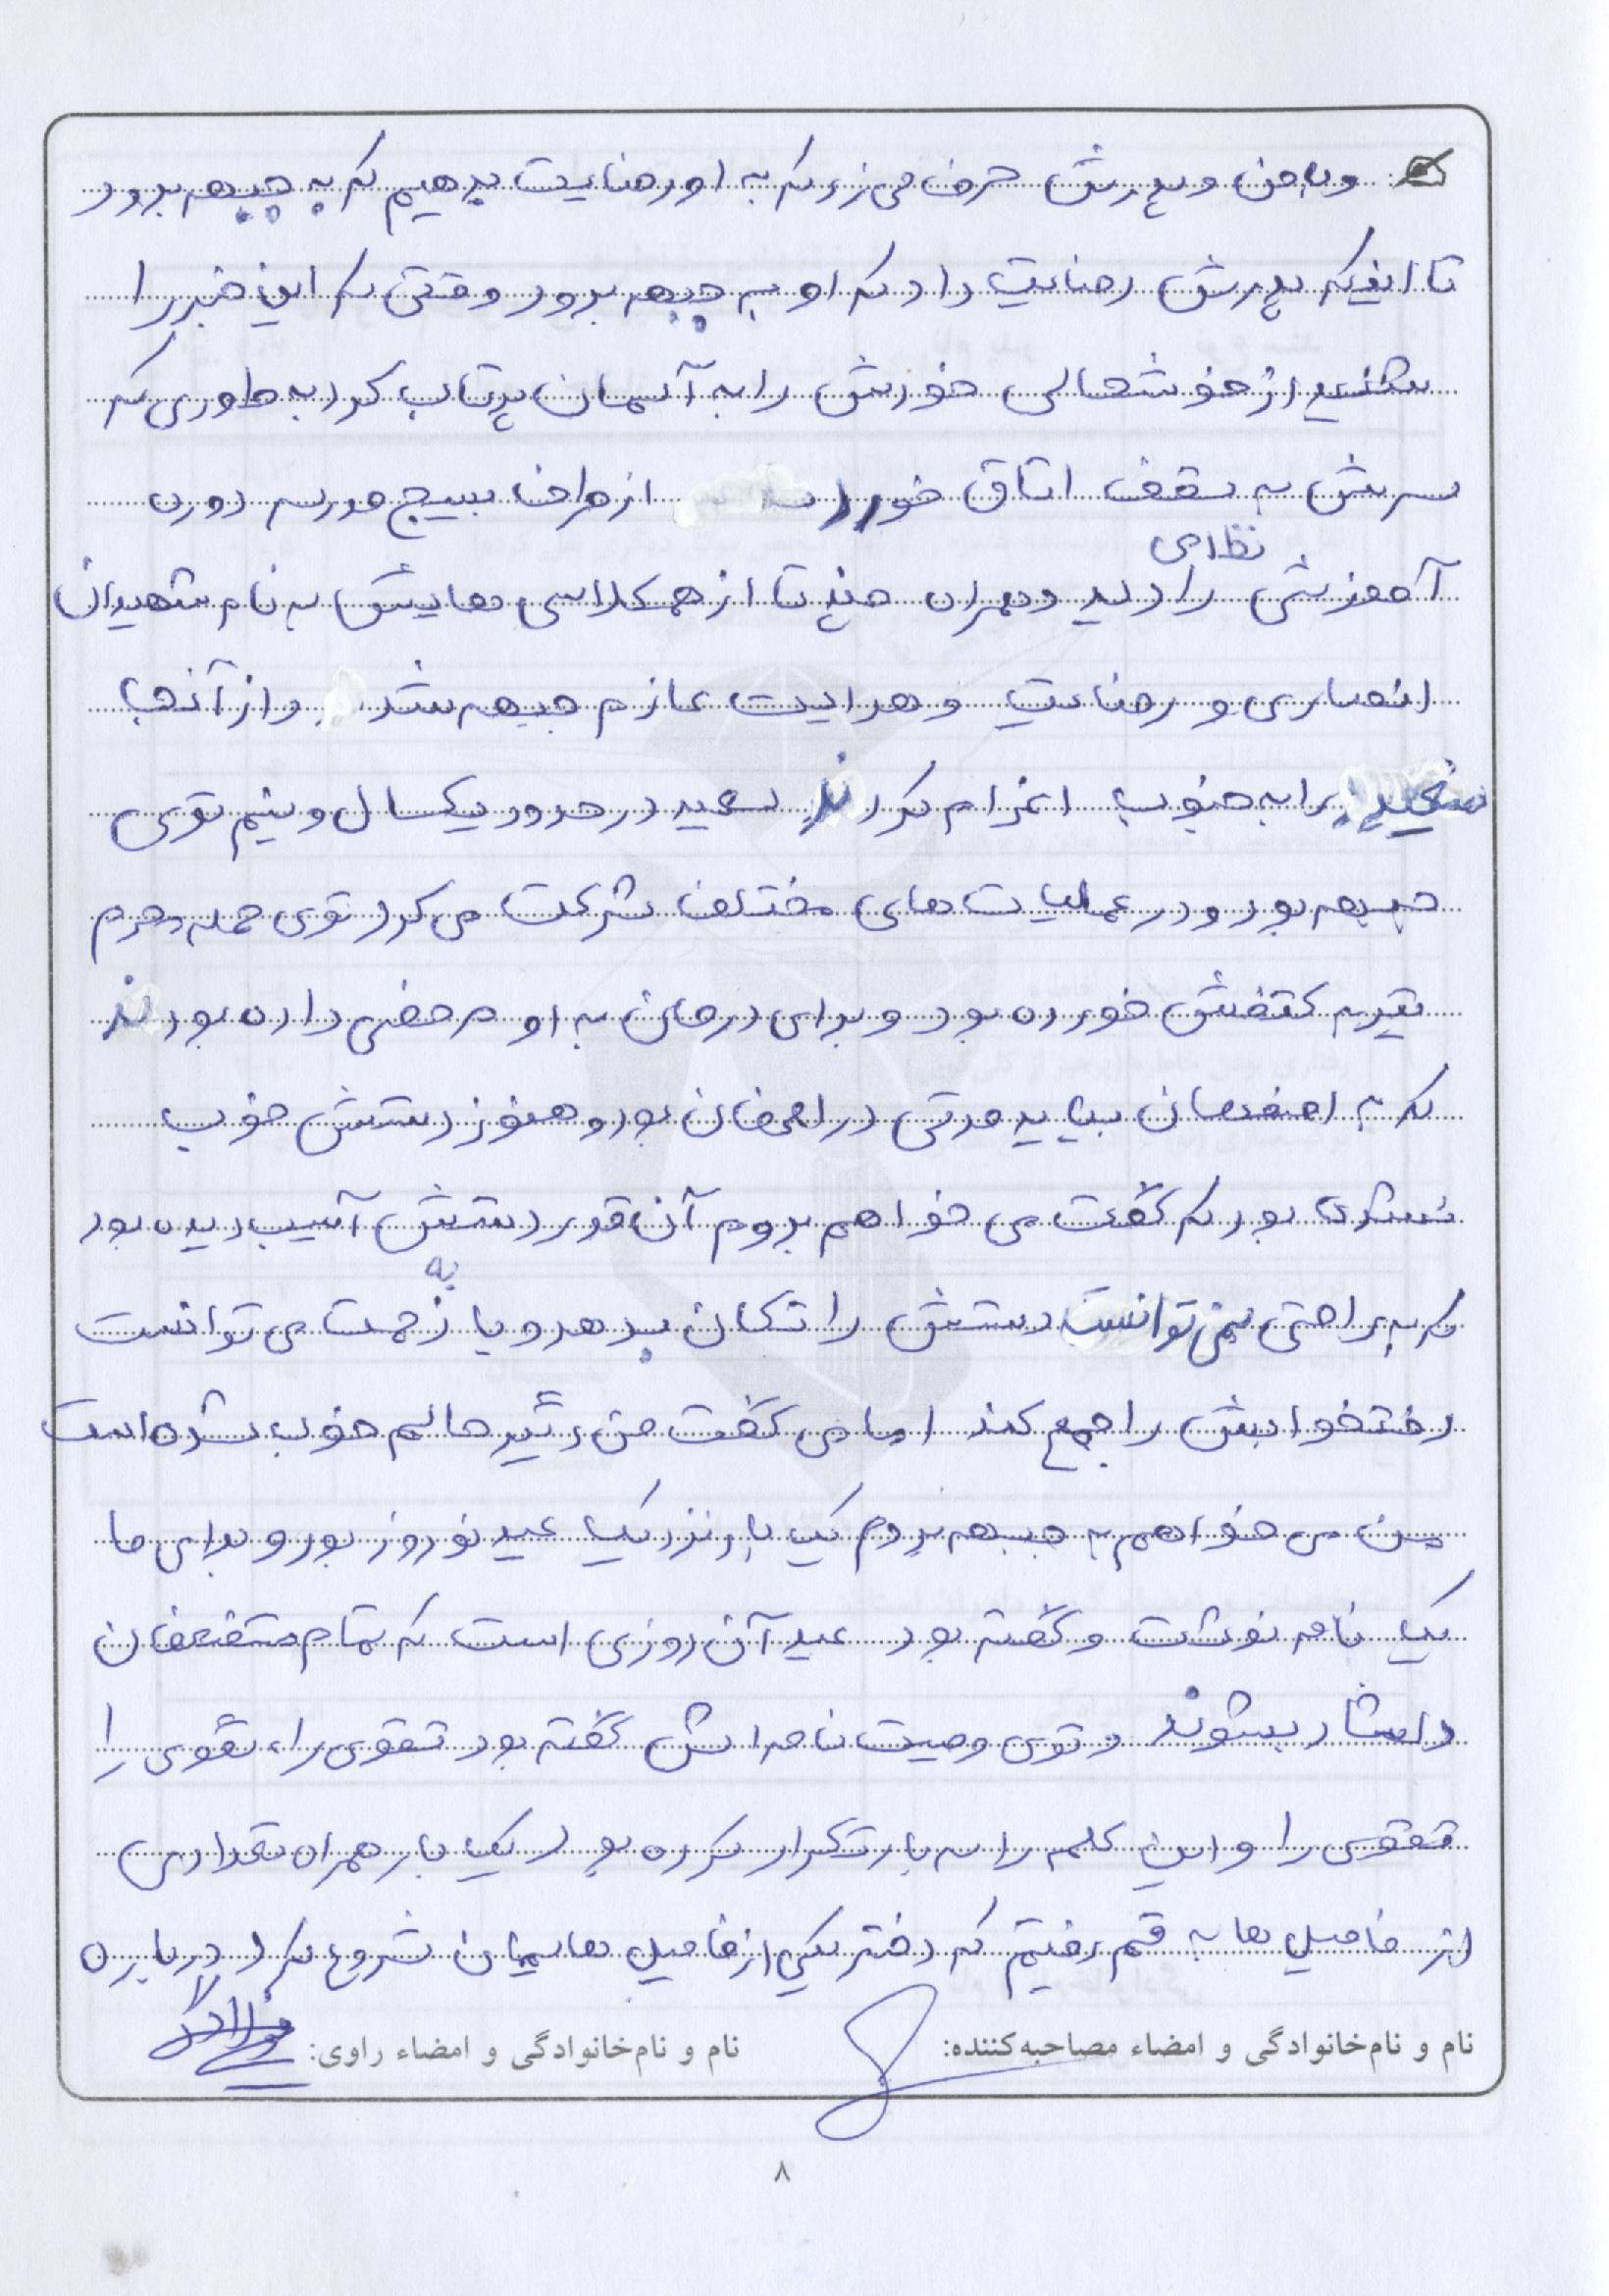 و با من و پدرش حرف می زد که به او رضایت بدهیم که به جبهه برود
تا اینکه پدرش رضایت داد که او به جبهه برود وقتی که این خبر را
شنید از خوشحالی خودش را به آسمان پرتاب کرد به طوری که
سرش به سقف اتاق خورد از طرف بسیج مدرسه دوره
آموزشی نظامی را دید و همراه چند تا از همکلاسی هایش به نام شهیدان
انصاری و رضایت و هدایت عازم جبهه شد و از آنجا
سعید را به جنوب اعزام کردند سعید در حدود یکسال و نیم توی
جبهه بود و در عملیات های مختلف شرکت می کرد توی حمله دهم
تیر به کتفش خورده بود و برای درمان به او مرخصی داده بودند
که به اصفهان بیاید مدتی در اصفهان بود و هنوز دستش خوب
نشده بود که گفت می خواهم بروم آن قدر دستش آسیب دیده بود
که به راحتی نمی توانست دستش را تکان بدهد و یا به زحمت می توانست
رختخوابش را جمع کند اما می گفت من دیگر حالم خوب شده است
من می خواهم به جبهه بروم یک بار نزدیک عید نوروز بود و برای ما
یک نامه نوشت و گفته بود عید آن روزی است که تمام مستضعفان
دلشاد بشوند و توی وصیت نامه اش گفته بود تقوی را، تقوی را
تقوی را و این کلمه را سه بار تکرار کرده بود یک بار همراه تعدادی
از فامیل ها به قم رفتیم که دختر یکی از فامیل هایمان شروع کرد درباره
نام و نام‌خانوادگی و امضاء مصاحبه‌کننده: نام و نام‌خانوادگی و امضاء راوی:
۸